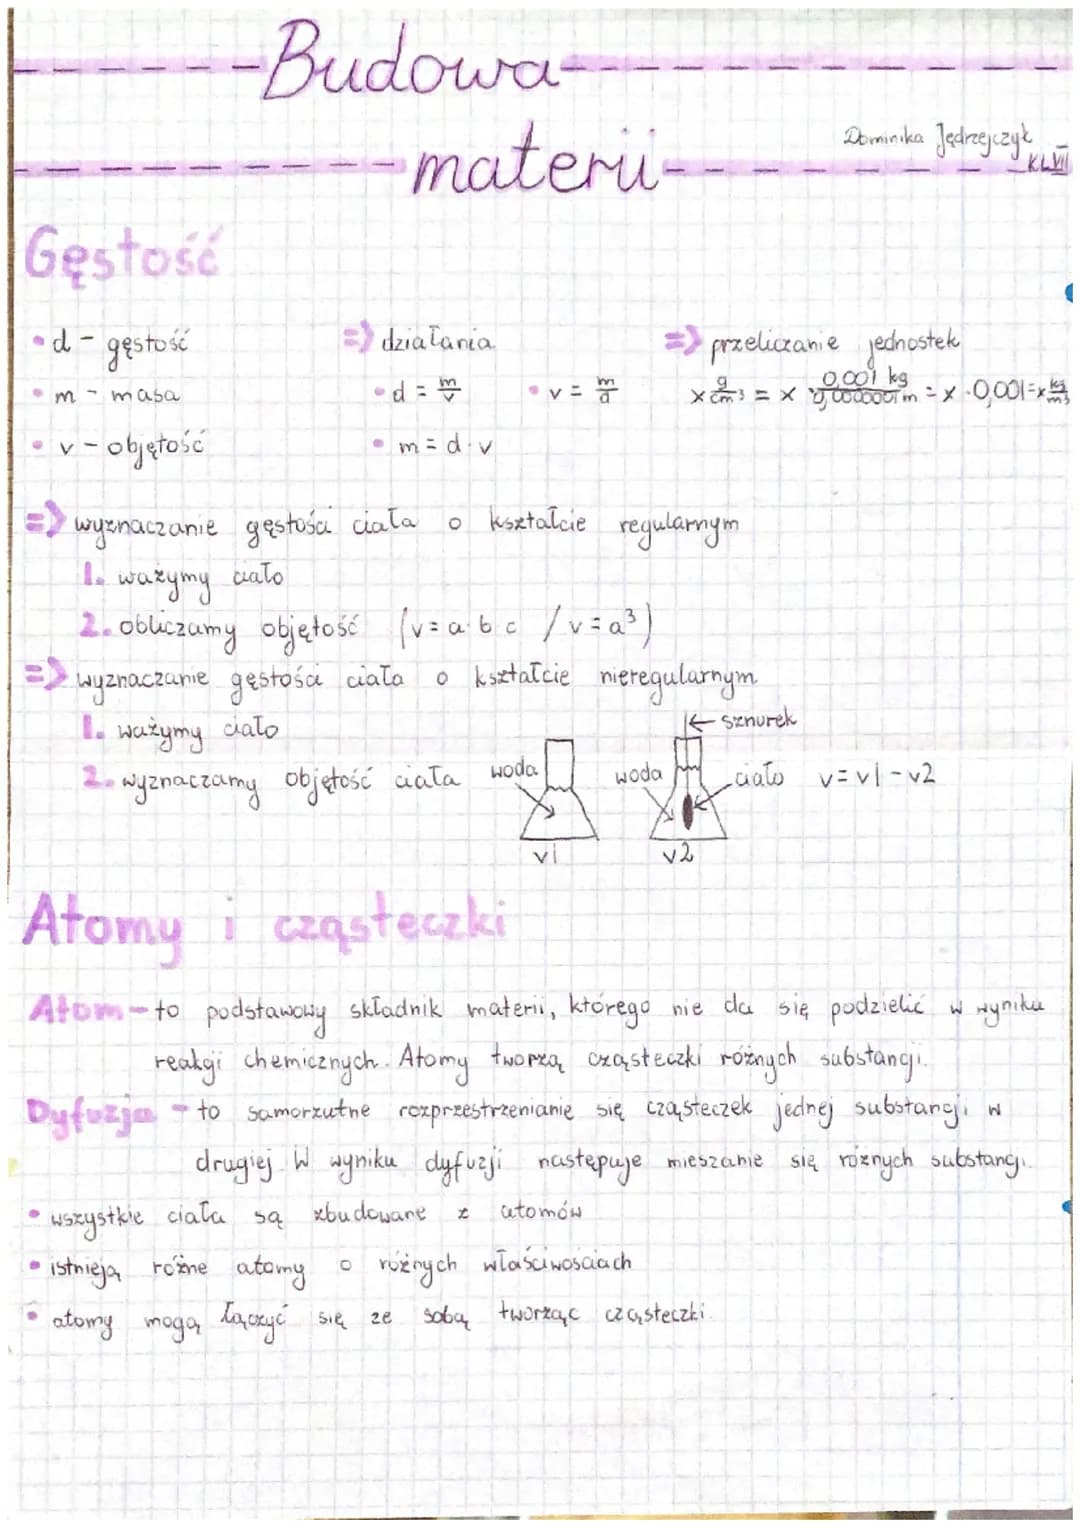 Budowa
materii
Dominika Jędrzejczyk
KL VII
Gęstość
• d - gęstość
=> działania
=> przeliczanie jednostek
• m - masa
• d = m/v
• v = m/d
x g/cm³ = x 0,001 kg/0,000001m = x · 0,001 = x kg/m³
• v - objętość
• m = d · v
=> wyznaczanie gęstości ciała o kształcie regularnym
1. ważymy ciało
2. obliczamy objętość (v = a·b·c / v = a³)
=> wyznaczanie gęstości ciała o kształcie nieregularnym
1. ważymy ciało
← sznurek
2. wyznaczamy objętość ciała
woda
woda
ciało
v = v1 - v2
v1
v2
Atomy i cząsteczki
Atom - to podstawowy składnik materii, którego nie da się podzielić w wyniku
reakcji chemicznych. Atomy tworzą cząsteczki różnych substancji.
Dyfuzja - to samorzutne rozprzestrzenianie się cząsteczek jednej substancji w
drugiej. W wyniku dyfuzji następuje mieszanie się różnych substancji.
• wszystkie ciała są zbudowane z atomów
• istnieją różne atomy o różnych właściwościach
• atomy mogą łączyć się ze sobą tworząc cząsteczki.